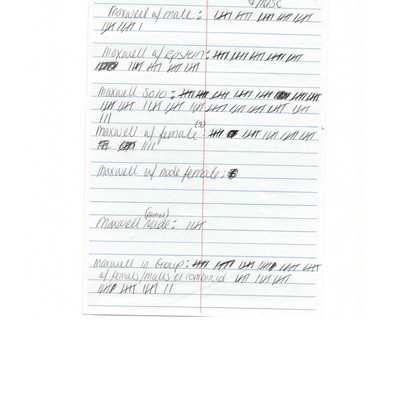 & misc
Maxwell w/ male:
Maxwell w/ Epstein:
Maxwell solo:
(s)
Maxwell w/ female:
Maxwell w/ nude female:
Maxwell nude:
Maxwell in Group:
w/ females/males or combined